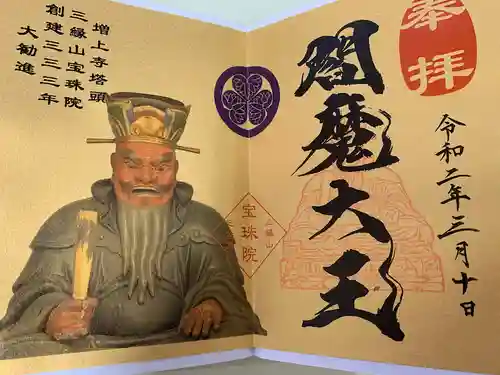 奉拝
令和二年三月十日
閻魔大王
三縁山
宝珠院
増上寺塔頭
三縁山宝珠院
創建三三三年
大勧進